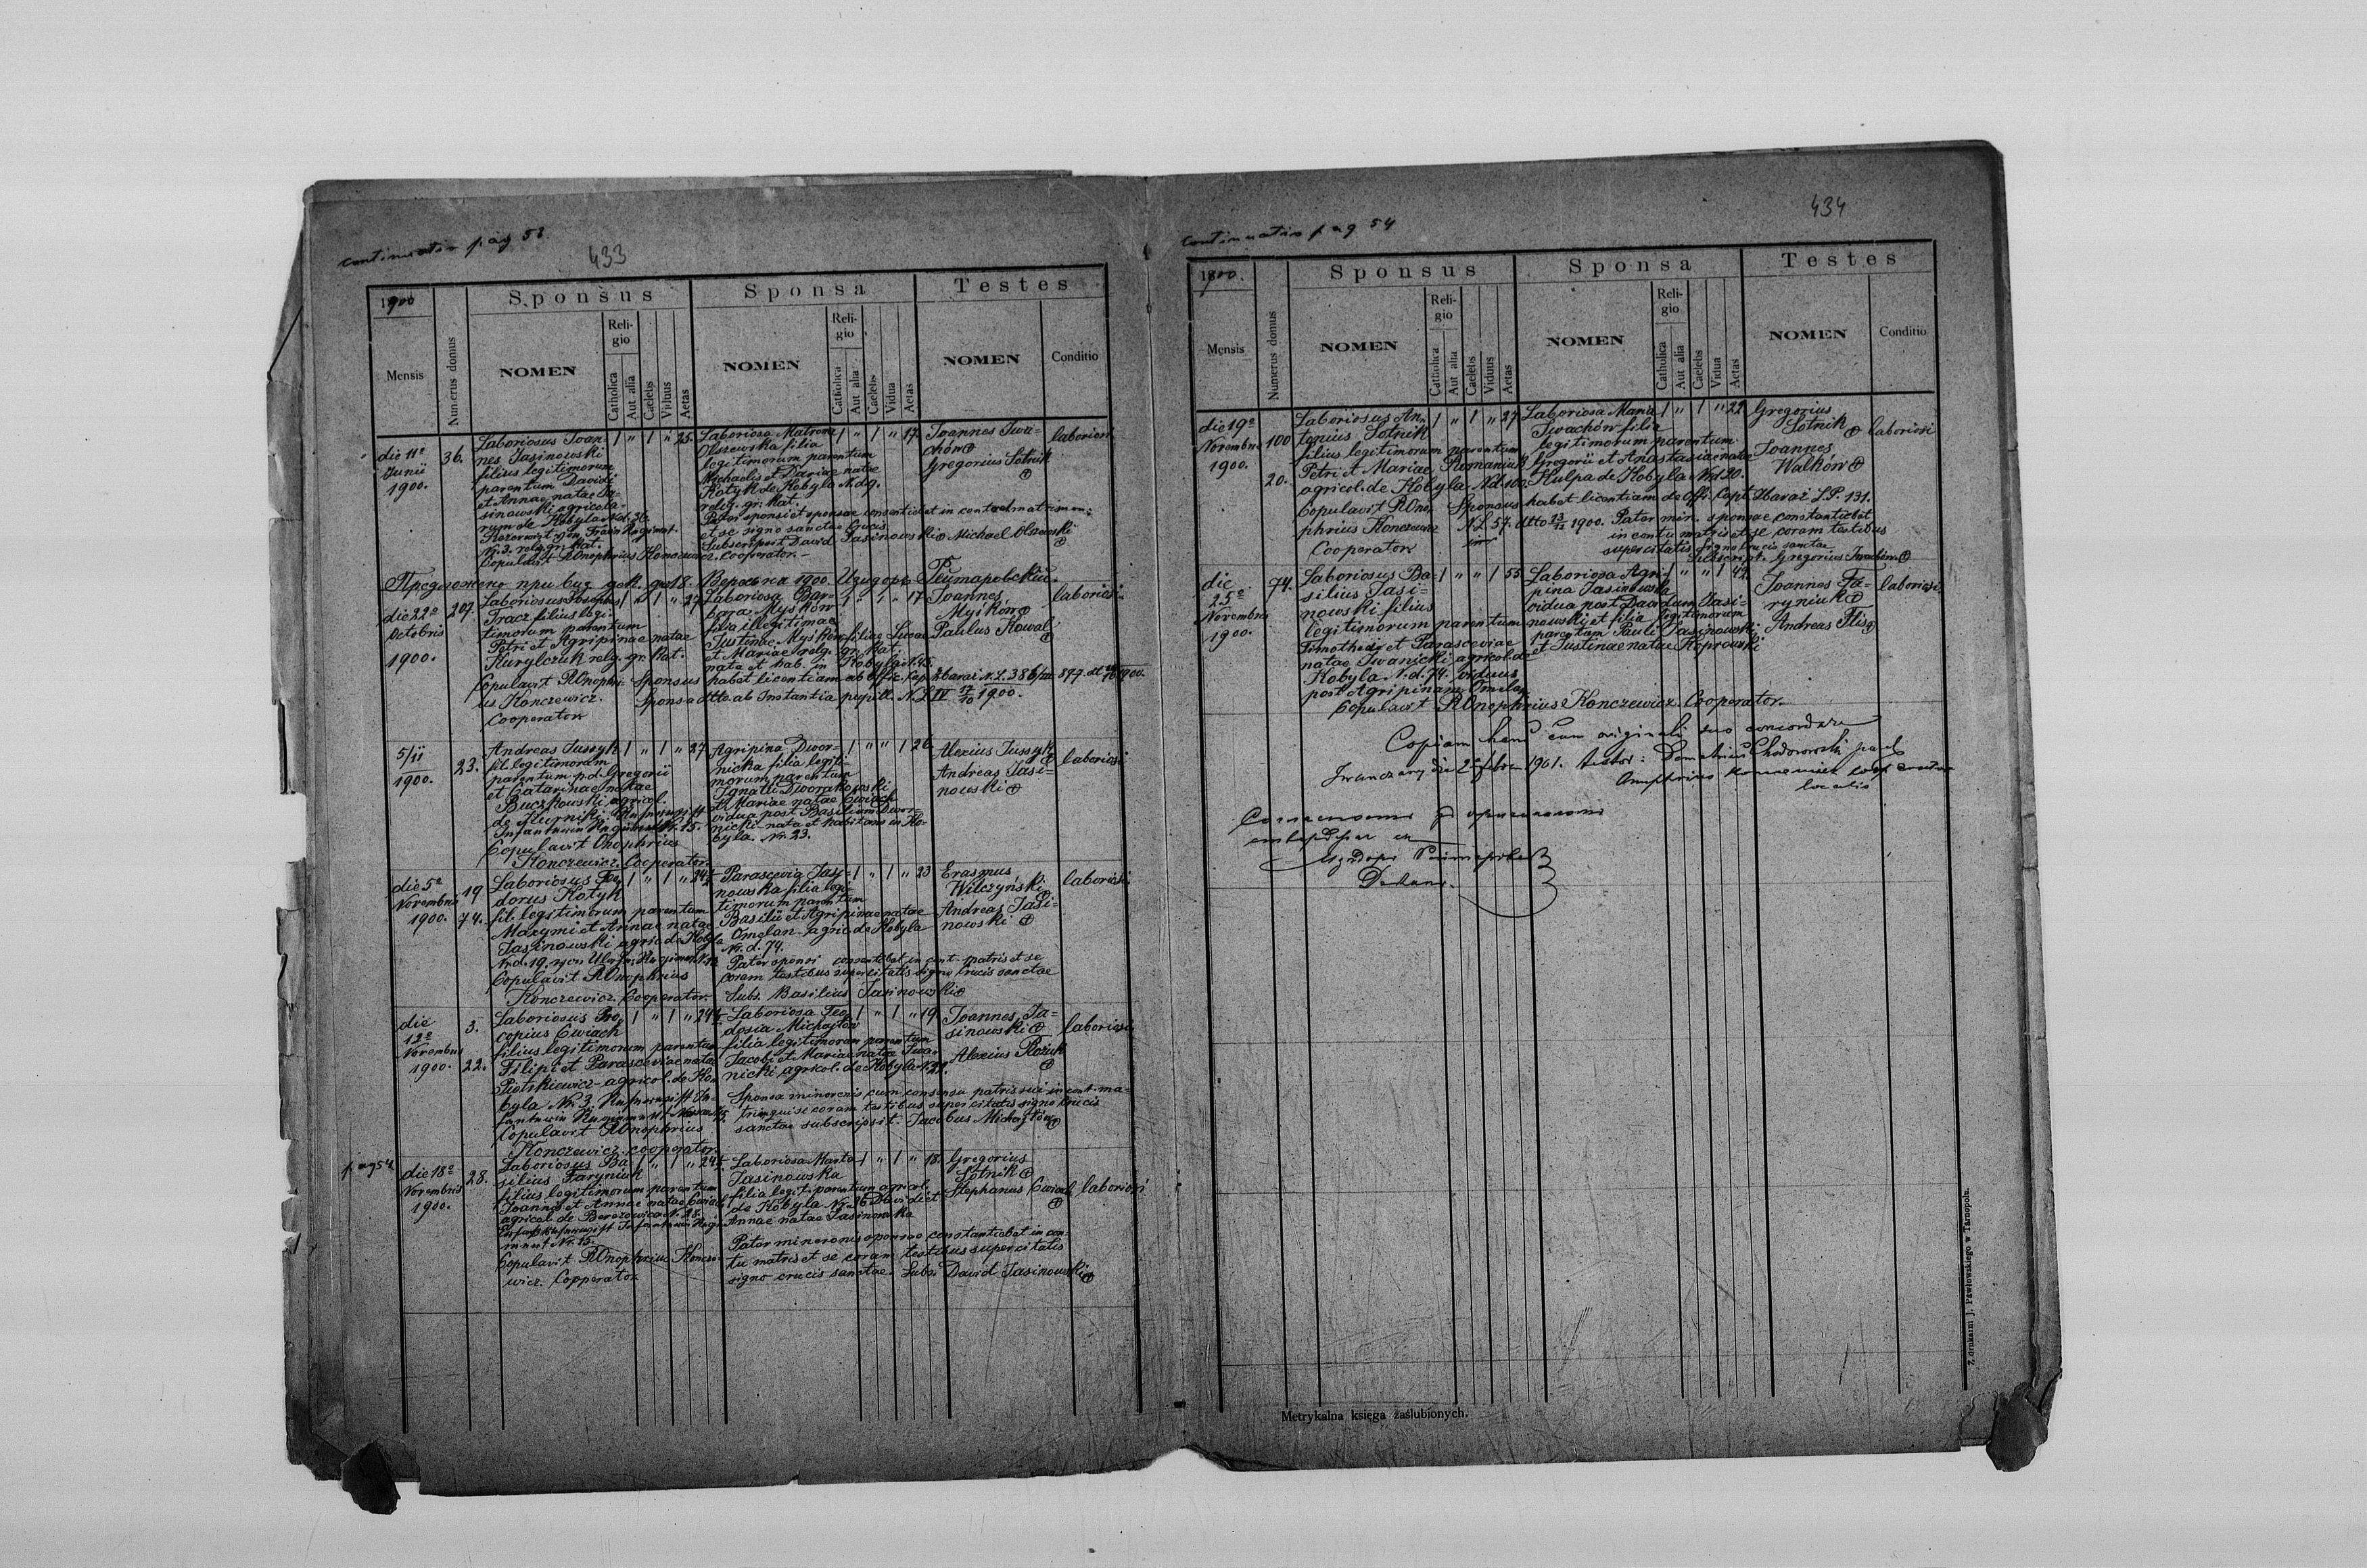 continuatio pag 53
433
1900
Mensis
Numerus domus
Sponsus
NOMEN
Reli-
gio
Catholica
Aut alia
Caelebs
Viduus
Aetas
Sponsa
NOMEN
Reli-
gio
Catholica
Aut alia
Caelebs
Vidua
Aetas
Testes
NOMEN
Conditio
die 11ª
Junii
1900.
36.
Laboriosus Joan-
nes Jasinowski
filius legitimorum
parentum Davidi
et Annae natae Ja-
sinowski agricola-
rum de Kobyla Nd. 36.
Nr. 3. relg. gr. kat.
Copulavit R Onophrius Konczewicz. Cooperator.
1 " 1 " 25.
Laboriosa Matrona
Olszewska filia
legitimorum parentum
Michaelis et Dariae natae
Kotyk de Kobyla N. d 9.
relig. gr. kat.
Pater sponsi et sponsae consentiebat in contrah matrimon:
et se signo sanctae Crucis
Subscripsit David Jasinowski Michael Olszewski
1 " 1 " 17.
Joannes Iwa-
chów
Gregorius Sotnik
laboriosi
Предложено при виз. дек. дня 18. Вересня 1900. Изидоръ
die 22ª
Octobris
1900.
207.
Laboriosus Josephus
Tracz filius legi-
timorum parentum
Petri et Agripinae natae
Kurylczuk relg. gr. kat.
Copulavit R Onophri-
us Konczewicz.
Cooperator
1 " 1 " 27
Laboriosa Bar-
bara Myśków
filia illegitimae
Justinae Myśków filiae Lucae
et Mariae relg. gr. kat.
nata et hab. in Kobyla N. 45.
Sponsus habet licentiam ab Offic. Cap. Zbaraż N. L. 386/III 879. dt 1900.
Sponsa dtto. ab Instantia pupill. N. L IV 17/10 1900.
1 " 1 " 17
Joannes
Myśków
Paulus Kowal
laboriosi
5/11
1900.
23.
Andreas Jussyk
fil. legitimorum
parentum p. d. Gregorii
et Catarinae natae
Buczkowski agricol.
de Kurniki
Copulavit Onophrius
Konczewicz. Cooperator.
1 " 1 " 27
Agripina Dwor-
nicka filia legiti-
morum parentum
Ignatii Dworakowski
et Mariae natae Cwiach
vidua post Basilium Dwor-
nicki nata et habitans in Ko-
byla. Nr. 23.
1 " " 1 26.
Alexius Jussyk
Andreas Jasi-
nowski
laboriosi
die 5ª
Novembris
1900.
19
74.
Laboriosus Teo-
dorus Kotyk
fil. legitimorum parentum
Maxymi et Annae natae
Jasinowski agric. de Kobyla
Copulavit R Onophrius
Konczewicz. Cooperator.
1 " 1 " 24½
Parascevia Jasy-
nowska filia legi-
timorum parentum
Basilii et Agripinae natae
Omelan agric. de Kobyla
Nr. d. 74.
Pater sponsi consentiebat in cont. matris et se
coram testibus supercitatis signo Crucis sanctae
Subs. Basilius Jasinowski
1 " 1 " 23
Erasmus
Wilczyński
Andreas Jasi-
nowski
laboriosi
die
12ª
Novembris
1900.
3.
22.
Laboriosus Pro-
copius Cwiach
filius legitimorum parentum
Filipi et Parasceviae natae
Piotrkiewicz agricol. de Ko-
byla Nr. 3
Copulavit R Onophrius
Konczewicz. cooperator.
1 " 1 " 24½
Laboriosa Teo-
dosia Michajlów
filia legitimorum parentum
Jacobi et Mariae natae Iwa-
nicki agricol. de Kobyla N. 22.
Sponsa minorenis cum consensu patris sui in cont. ma-
trim. qui se coram testibus supercitatis signo Crucis
sanctae subscripsit. Jacobus Michajlów
1 " 1 " 19
Joannes Ja-
sinowski
Alexius Rożuk
laboriosi
pag 54
die 18ª
Novembris
1900.
28.
Laboriosus Ba-
silius Faryniuk
filius legitimorum parentum
Joannis et Annae natae Cwiach
agricol. de Berezowica N. 28.
Copulavit R Onophrius Koncze-
wicz. Copperator
1 " 1 " 24½
Laboriosa Marta
Jasinowska
filia legit. parentum agricol.
de Kobyla Nr. 36 Davidi et
Annae natae Jasinowska
Pater minorenis sponsae constantiebat in con-
tu matris et se coram testibus supercitatis
signo crucis sanctae. Subs. David Jasinowski
1 " 1 " 18.
Gregorius
Sotnik
Stephanus Cwiach
laboriosi
continuatio pag 54
434
1900.
Mensis
Numerus domus
Sponsus
NOMEN
Reli-
gio
Catholica
Aut alia
Caelebs
Viduus
Aetas
Sponsa
NOMEN
Reli-
gio
Catholica
Aut alia
Caelebs
Vidua
Aetas
Testes
NOMEN
Conditio
die 19ª
Novembris
1900.
100
20.
Laboriosus An-
tonius Sotnik
filius legitimorum parentum
Petri et Mariae Romaniuk
agricol. de Kobyla Nd. 100.
Copulavit R Ono-
phrius Konczewicz
Cooperator
1 " 1 " 27
Laboriosa Maria
Iwachów filia
legitimorum parentum
Gregorii et Anastasiae natae
Kulpa de Kobyla Nd 20.
Sponsus habet licentiam de Off. Capt. Zbaraż L. P. 131.
N. L. 57. dtto 1900. Pater min. sponsae constantiebat
in contu matris et se coram testibus
supercitatis signo Crucis sanctae
Subscript. Gregorius Iwachów
1 " 1 " 22
Gregorius
Sotnik
Joannes
Walków
laboriosi
die
25ª
Novembris
1900.
74.
Laboriosus Ba-
silius Jasi-
nowski filius
legitimorum parentum
Timothei et Parasceviae
natae Iwanicki agricol. de
Kobyla N. d. 74. viduus
post Agripinam Omelan
1 " " 1 55
Laboriosa Agri-
pina Jasinowska
vidua post Davidum Jasi-
nowski et filia legitimorum
parentum Pauli Jasinowski
et Justinae natae Koprowski
1 " " 1 42
Joannes Fa-
ryniuk
Andreas Flis
laboriosi
Copulavit R Onophrius Konczewicz. Cooperator.
Copiam hanc cum originali suo concordare
Iwanczany die 2ª febr. 1901. testor: Demetrius Chodorowski paroch
Onuphrius Konczewicz cooperator
localis
Декан.
Metrykalna księga zaślubionych.
Z drukarni J. Pawłowskiego w Tarnopolu.